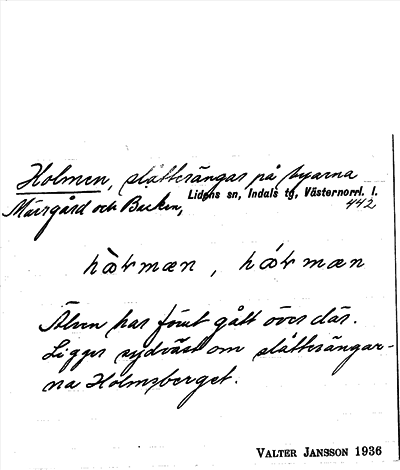 Holmen, slåtterängar på byarna
Mårgård och Backen, Lidens sn, Indals tg, Västernorrl. l.
442
hòrmæn, hórmæn
Älven har förut gått över där.
Ligger sydväst om slåtterängar-
na Holmsberget.
VALTER JANSSON 1936